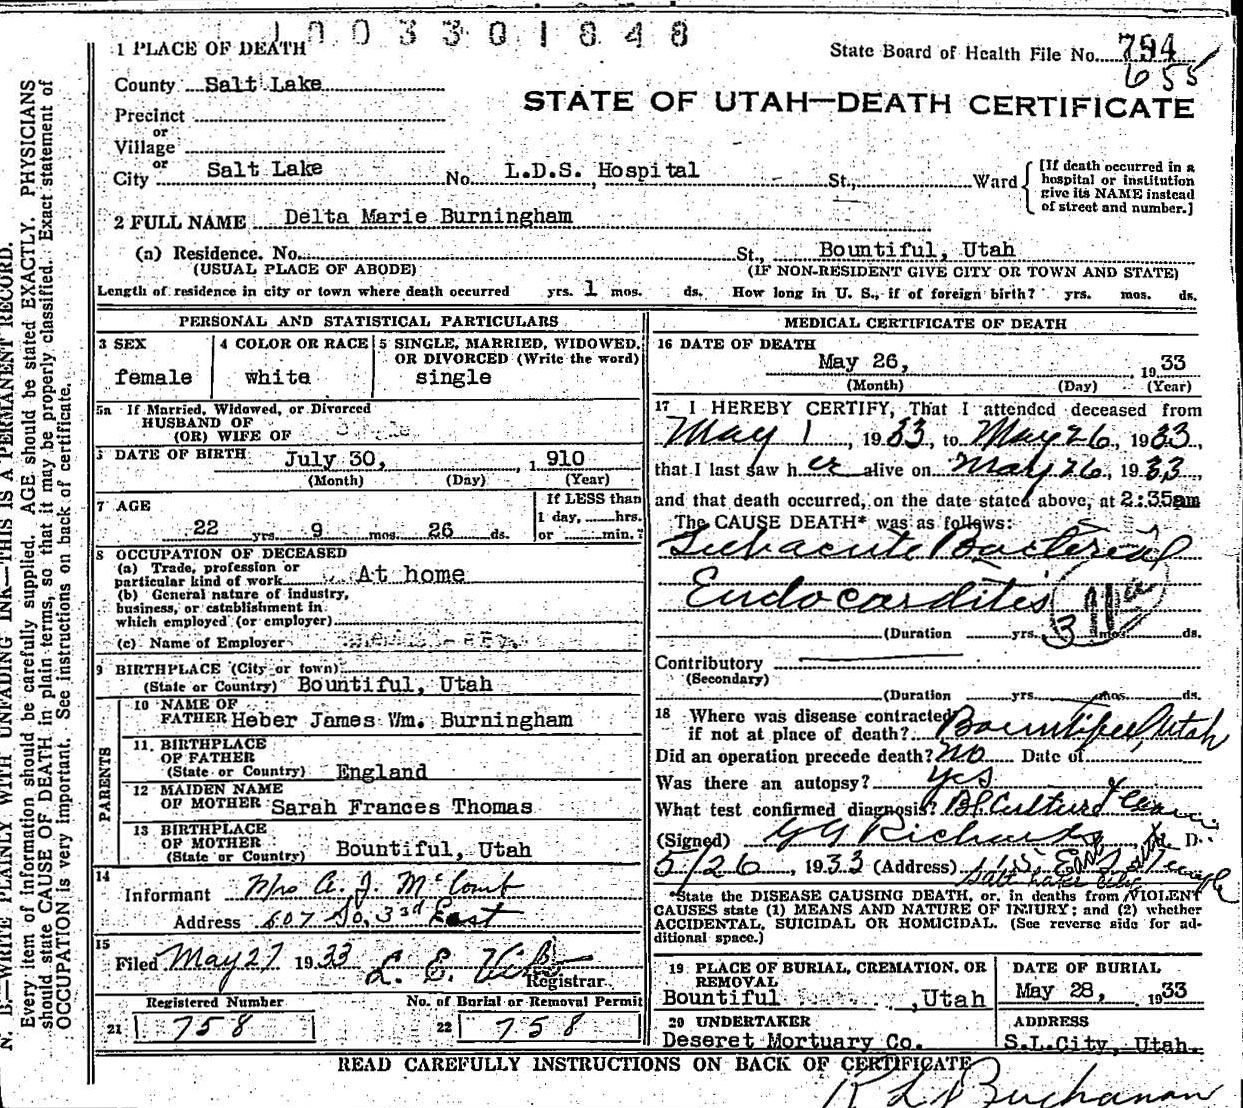 1003301848
1 PLACE OF DEATH
State Board of Health File No. 794
655
County Salt Lake
STATE OF UTAH—DEATH CERTIFICATE
Precinct
or
Village
or
City Salt Lake No. L.D.S. Hospital St., Ward
[If death occurred in a hospital or institution give its NAME instead of street and number.]
2 FULL NAME Delta Marie Burningham
(a) Residence. No. St., Bountiful, Utah
(USUAL PLACE OF ABODE) (IF NON-RESIDENT GIVE CITY OR TOWN AND STATE)
Length of residence in city or town where death occurred yrs. 1 mos. ds. How long in U. S., if of foreign birth? yrs. mos. ds.
PERSONAL AND STATISTICAL PARTICULARS
3 SEX 4 COLOR OR RACE 5 SINGLE, MARRIED, WIDOWED,
OR DIVORCED (Write the word)
female white single
5a If Married, Widowed, or Divorced
HUSBAND OF
(OR) WIFE OF
DATE OF BIRTH July 30, , 1910
(Month) (Day) (Year)
7 AGE If LESS than
1 day, hrs.
22 yrs. 9 mos. 26 ds. or min.?
8 OCCUPATION OF DECEASED
(a) Trade, profession or
particular kind of work At home
(b) General nature of industry,
business, or establishment in
which employed (or employer)
(c) Name of Employer
9 BIRTHPLACE (City or town)
(State or Country) Bountiful, Utah
PARENTS
10 NAME OF
FATHER Heber James Wm. Burningham
11. BIRTHPLACE
OF FATHER
(State or Country) England
12 MAIDEN NAME
OF MOTHER Sarah Frances Thomas
13 BIRTHPLACE
OF MOTHER
(State or Country) Bountiful, Utah
14
Informant Mrs A. J. McComb
Address 607 So. 3rd East
15
Filed May 27 1933 L. E.
Registrar.
Registered Number No. of Burial or Removal Permit
21 758 22 758
MEDICAL CERTIFICATE OF DEATH
16 DATE OF DEATH
May 26, 1933
(Month) (Day) (Year)
17 I HEREBY CERTIFY, That I attended deceased from
May 1, 1933, to May 26, 1933,
that I last saw her alive on May 26, 1933,
and that death occurred, on the date stated above, at 2:35am
The CAUSE DEATH* was as follows:
Subacute Bacterial
Endocarditis
(Duration yrs. 3 mos. ds.
Contributory
(Secondary)
(Duration yrs. mos. ds.
18 Where was disease contracted
if not at place of death? Bountiful, Utah
Did an operation precede death? no Date of
Was there an autopsy? yes
What test confirmed diagnosis? Bl. Culture &
(Signed) G G Richards D.
5/26, 1933 (Address) 15 East South Temple
Salt Lake City
State the DISEASE CAUSING DEATH, or, in deaths from VIOLENT
CAUSES state (1) MEANS AND NATURE OF INJURY; and (2) whether
ACCIDENTAL, SUICIDAL OR HOMICIDAL. (See reverse side for ad-
ditional space.)
19 PLACE OF BURIAL, CREMATION, OR
REMOVAL
Bountiful ,Utah
DATE OF BURIAL
May 28, 1933
20 UNDERTAKER
Deseret Mortuary Co.
ADDRESS
S.L.City, Utah.
READ CAREFULLY INSTRUCTIONS ON BACK OF CERTIFICATE
R L Buchanan
N. B.—WRITE PLAINLY WITH UNFADING INK—THIS IS A PERMANENT RECORD.
Every item of information should be carefully supplied. AGE should be stated EXACTLY. PHYSICIANS
should state CAUSE OF DEATH in plain terms, so that it may be properly classified. Exact statement of
OCCUPATION is very important. See instructions on back of certificate.